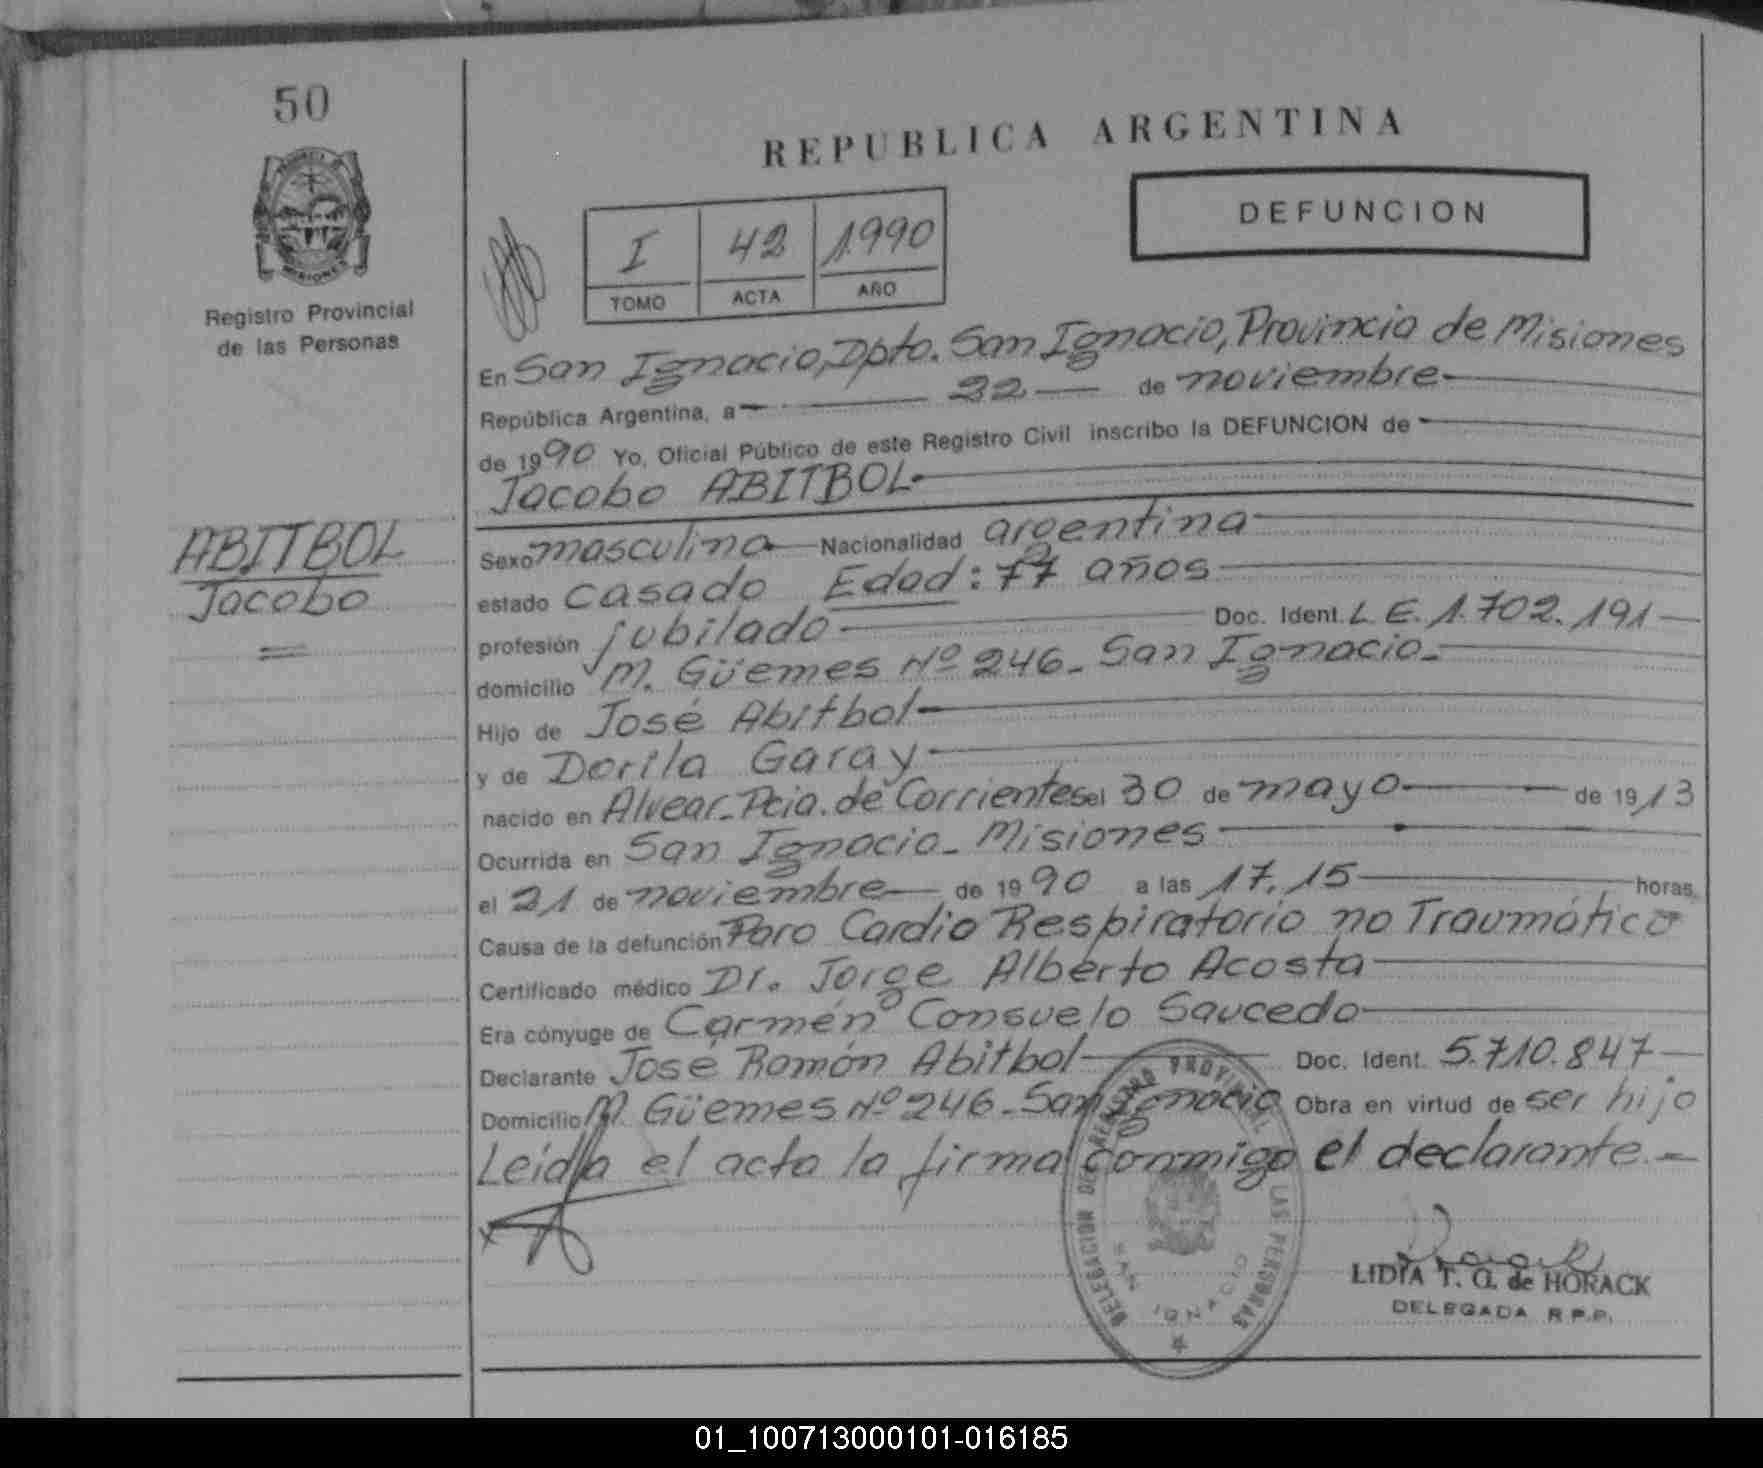 50
MISIONES
Registro Provincial
de las Personas
ABITBOL
Jacobo
REPUBLICA ARGENTINA
DEFUNCION
I 42 1990
TOMO ACTA AÑO
En San Ignacio, Dpto. San Ignacio, Provincia de Misiones
República Argentina, a 22 de noviembre
de 1990 Yo, Oficial Público de este Registro Civil inscribo la DEFUNCION de
Jacobo ABITBOL
Sexo masculino Nacionalidad argentina
estado casado Edad: 77 años
profesión jubilado Doc. Ident. L E. 1.702.191
domicilio M. Güemes Nº 246 - San Ignacio -
Hijo de José Abitbol
y de Dorila Garay
nacido en Alvear - Pcia. de Corrientes el 30 de mayo de 1913
Ocurrida en San Ignacio - Misiones
el 21 de noviembre de 1990 a las 17,15 horas,
Causa de la defunción Paro Cardio Respiratorio no Traumático
Certificado médico Dr. Jorge Alberto Acosta
Era cónyuge de Carmén Consuelo Saucedo
Declarante José Ramón Abitbol Doc. Ident. 5.710.847
Domicilio M. Güemes Nº 246 - San Ignacio Obra en virtud de ser hijo
Leída el acta la firma conmigo el declarante. -
DELEGACION DEL REGISTRO PROVINCIAL DE LAS PERSONAS
SAN IGNACIO
LIDIA T. G. de HORACK
DELEGADA R.P.P.
01_100713000101-016185